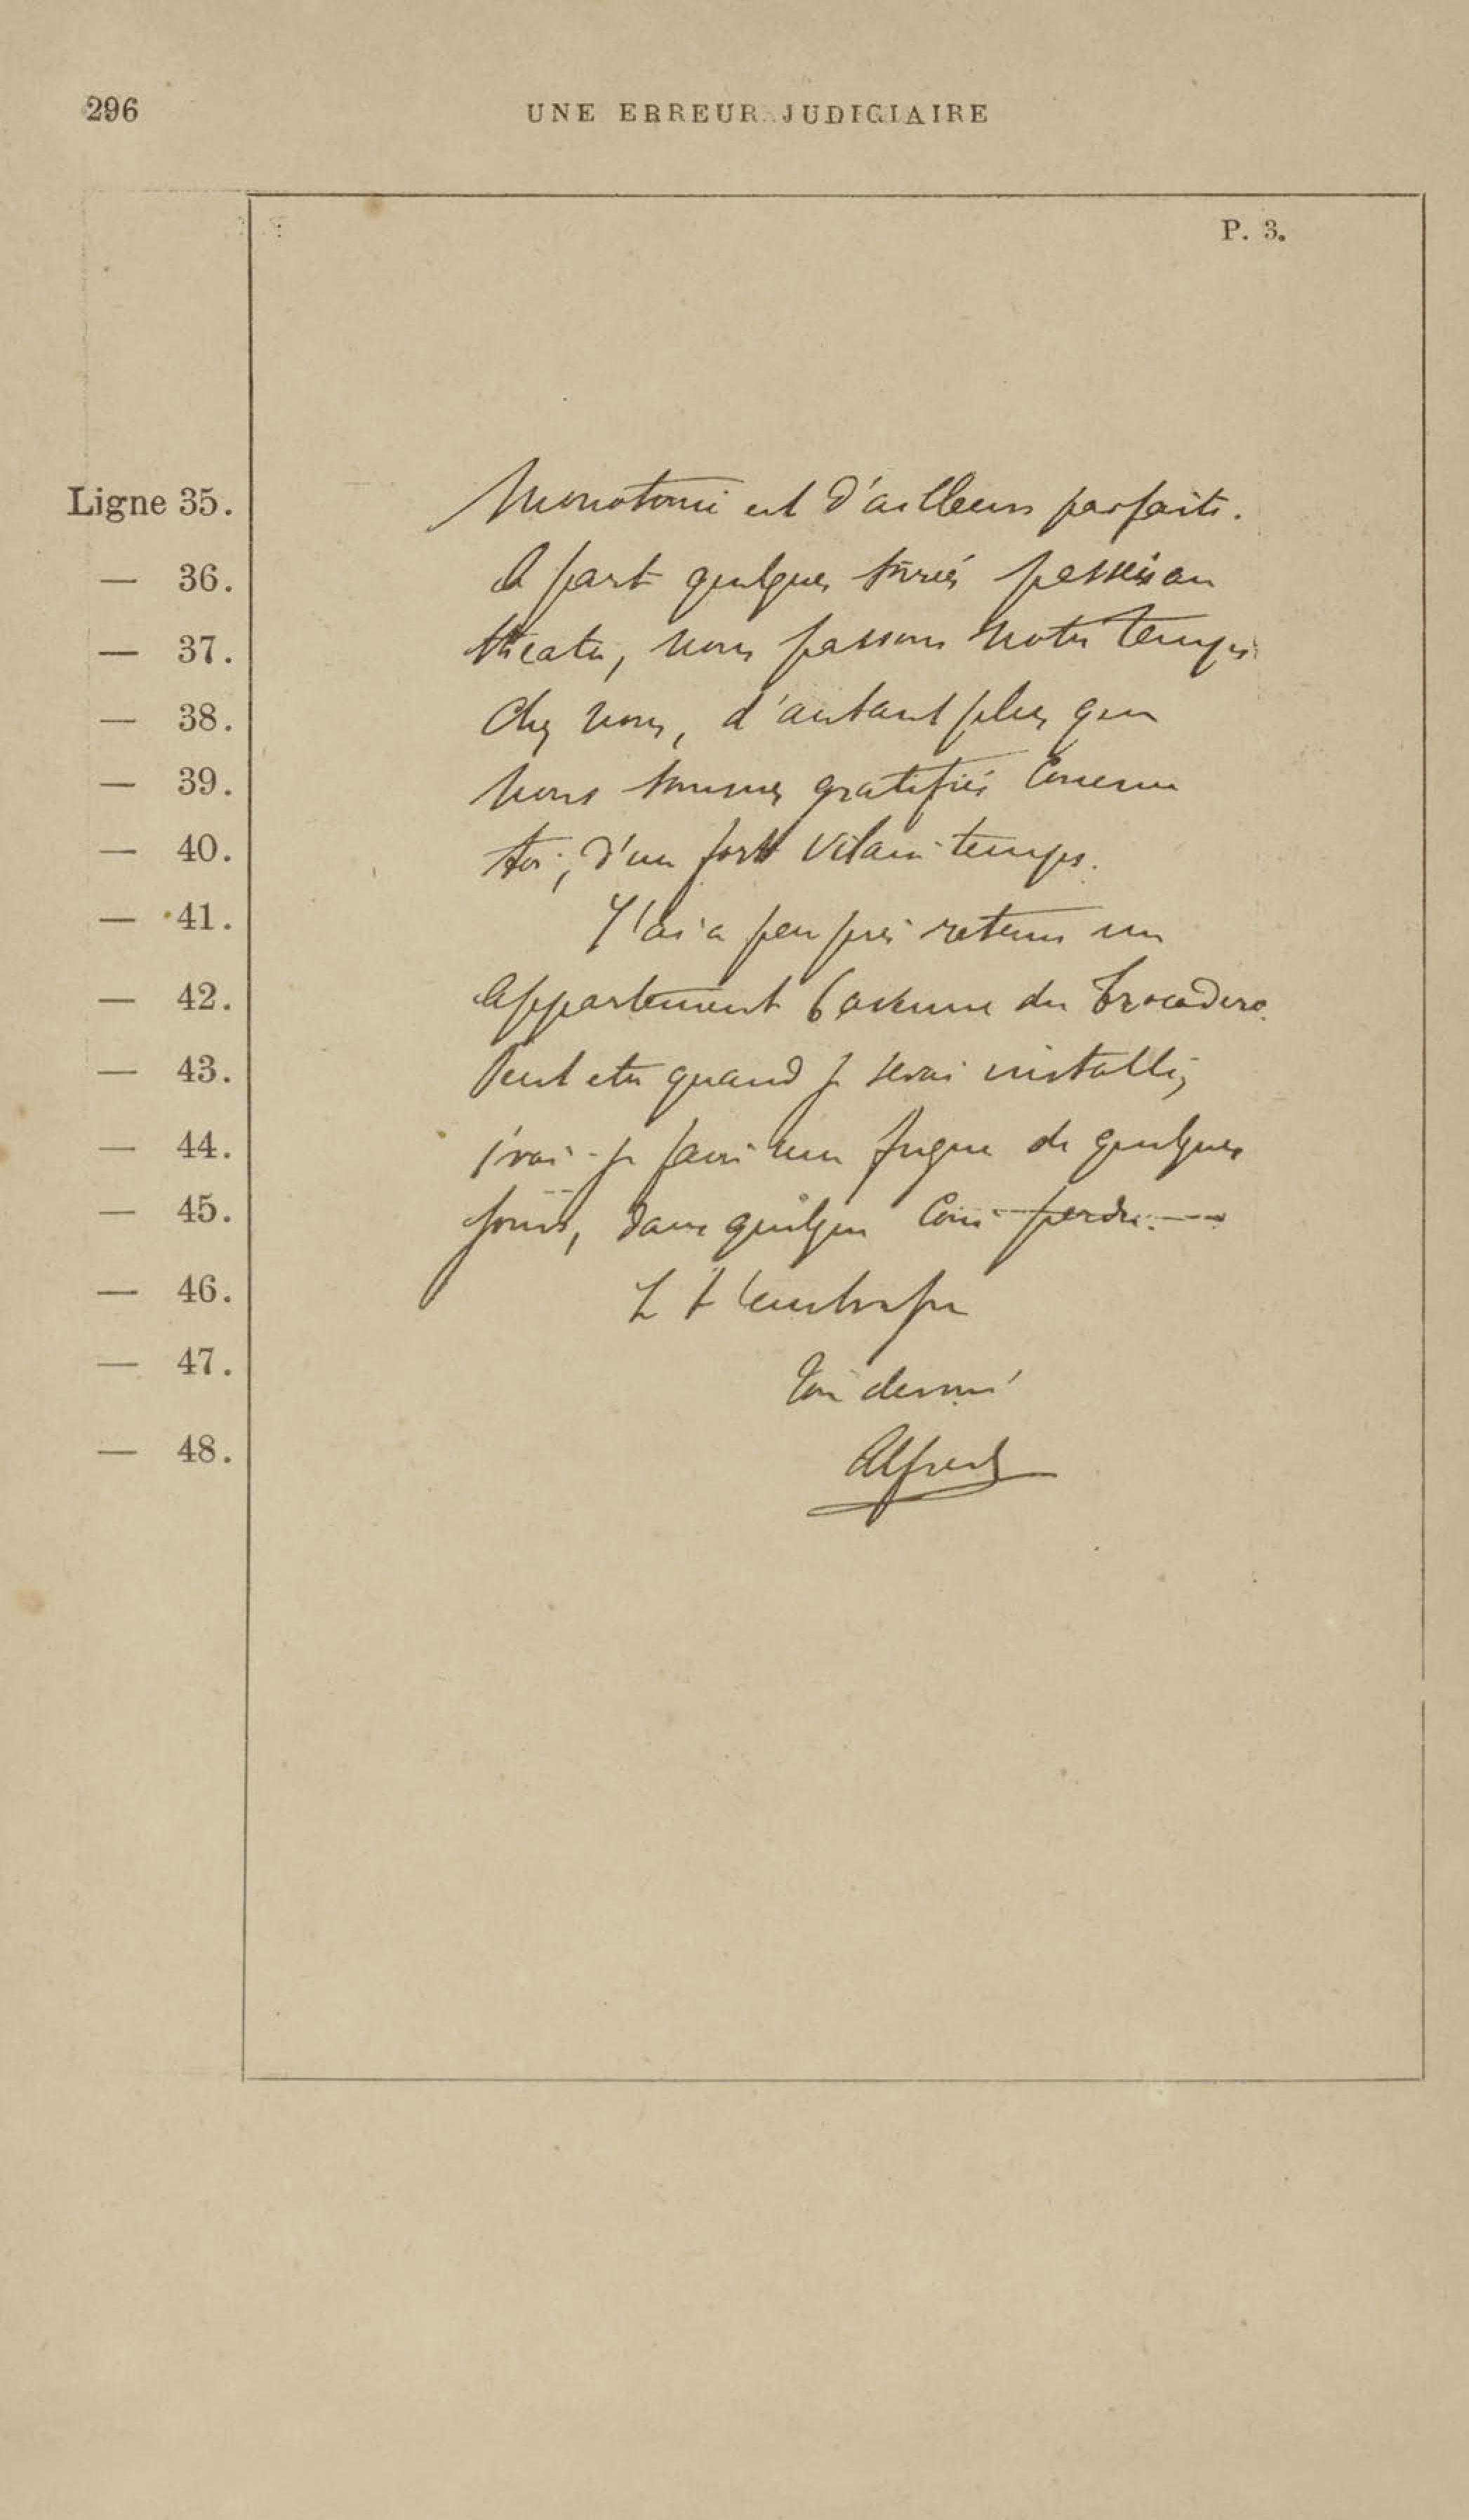 296
UNE ERREUR JUDICIAIRE
P. 3.
Ligne 35. Monotonie est d'ailleurs parfaite.
— 36. A part quelques soirées passées au
— 37. théatre, nous passons notre temps
— 38. chez nous, d'autant plus que
— 39. nous sommes gratifiés comme
— 40. toi, d'un fort vilain temps.
— 41. J'ai à peu près retenu un
— 42. appartement avenue du Trocadero.
— 43. Peut etre quand je serai installé,
— 44. irai-je faire une fugue de quelques
— 45. jours, dans quelque coin perdu.
— 46. Je t'
— 47. Ton
— 48. Alfred